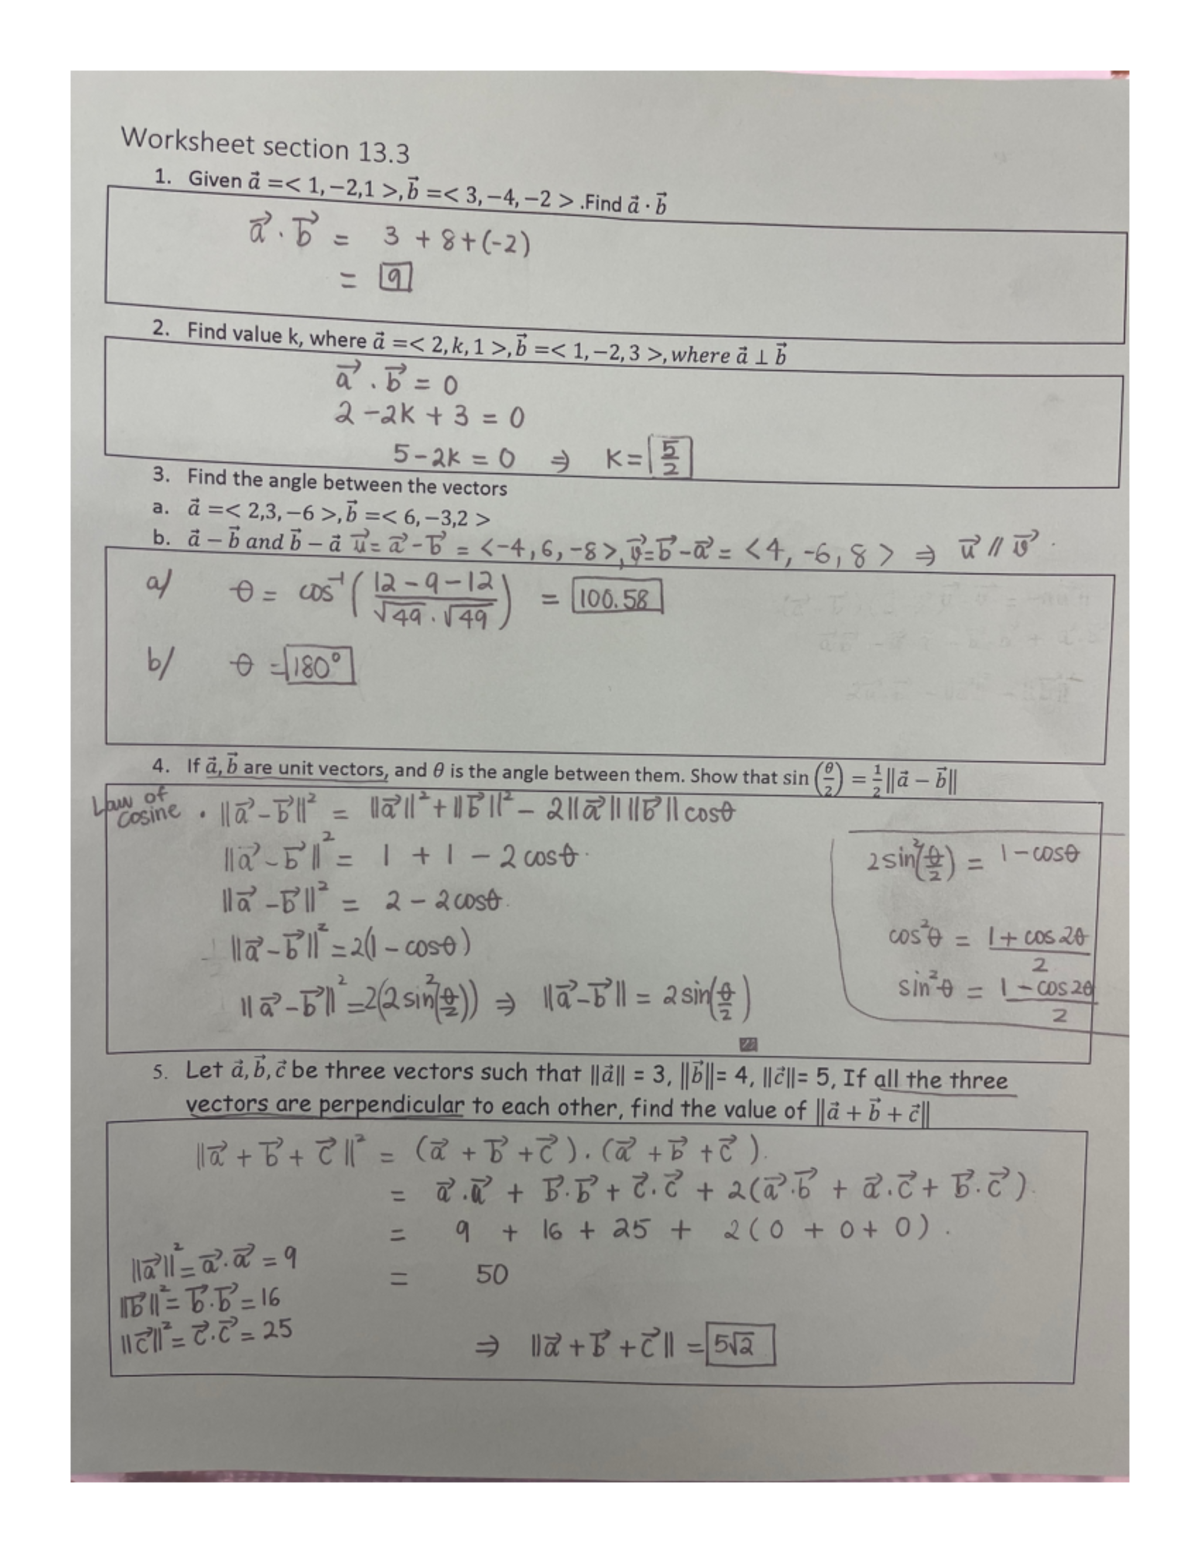 Worksheet section 13.3
1. Given a⃗ =< 1, −2,1 >, b⃗ =< 3, −4, −2 > .Find a⃗ · b⃗
a⃗ · b⃗ = 3 + 8 + (-2)
= 9
2. Find value k, where a⃗ =< 2, k, 1 >, b⃗ =< 1, −2, 3 >, where a⃗ ⊥ b⃗
a⃗ · b⃗ = 0
2 - 2k + 3 = 0
5 - 2k = 0 ⇒ k = 5/2
3. Find the angle between the vectors
a. a⃗ =< 2,3, −6 >, b⃗ =< 6, −3,2 >
b. a⃗ − b⃗ and b⃗ − a⃗ u⃗ = a⃗ - b⃗ = <-4, 6, -8>, v⃗ = b⃗ - a⃗ = <4, -6, 8> ⇒ u⃗ // v⃗.
a/ θ = cos⁻¹ ( (12 - 9 - 12) / (√49 · √49) ) = 100.58
b/ θ = 180°
4. If a⃗, b⃗ are unit vectors, and θ is the angle between them. Show that sin (θ/2) = 1/2 ||a⃗ − b⃗||
Law of cosine • ||a⃗ - b⃗||² = ||a⃗||² + ||b⃗||² - 2||a⃗|| ||b⃗|| cosθ
||a⃗ - b⃗||² = 1 + 1 - 2 cosθ.
||a⃗ - b⃗||² = 2 - 2 cosθ.
||a⃗ - b⃗||² = 2(1 - cosθ)
||a⃗ - b⃗||² = 2(2 sin²(θ/2)) ⇒ ||a⃗ - b⃗|| = 2 sin(θ/2)
2 sin²(θ/2) = 1 - cosθ
cos²θ = (1 + cos 2θ)/2
sin²θ = (1 - cos 2θ)/2
5. Let a⃗, b⃗, c⃗ be three vectors such that ||a⃗|| = 3, ||b⃗||= 4, ||c⃗||= 5, If all the three
vectors are perpendicular to each other, find the value of ||a⃗ + b⃗ + c⃗||
||a⃗ + b⃗ + c⃗||² = (a⃗ + b⃗ + c⃗) · (a⃗ + b⃗ + c⃗).
= a⃗ · a⃗ + b⃗ · b⃗ + c⃗ · c⃗ + 2(a⃗ · b⃗ + a⃗ · c⃗ + b⃗ · c⃗).
= 9 + 16 + 25 + 2(0 + 0 + 0).
= 50
||a⃗||² = a⃗ · a⃗ = 9
||b⃗||² = b⃗ · b⃗ = 16
||c⃗||² = c⃗ · c⃗ = 25
⇒ ||a⃗ + b⃗ + c⃗|| = 5√2